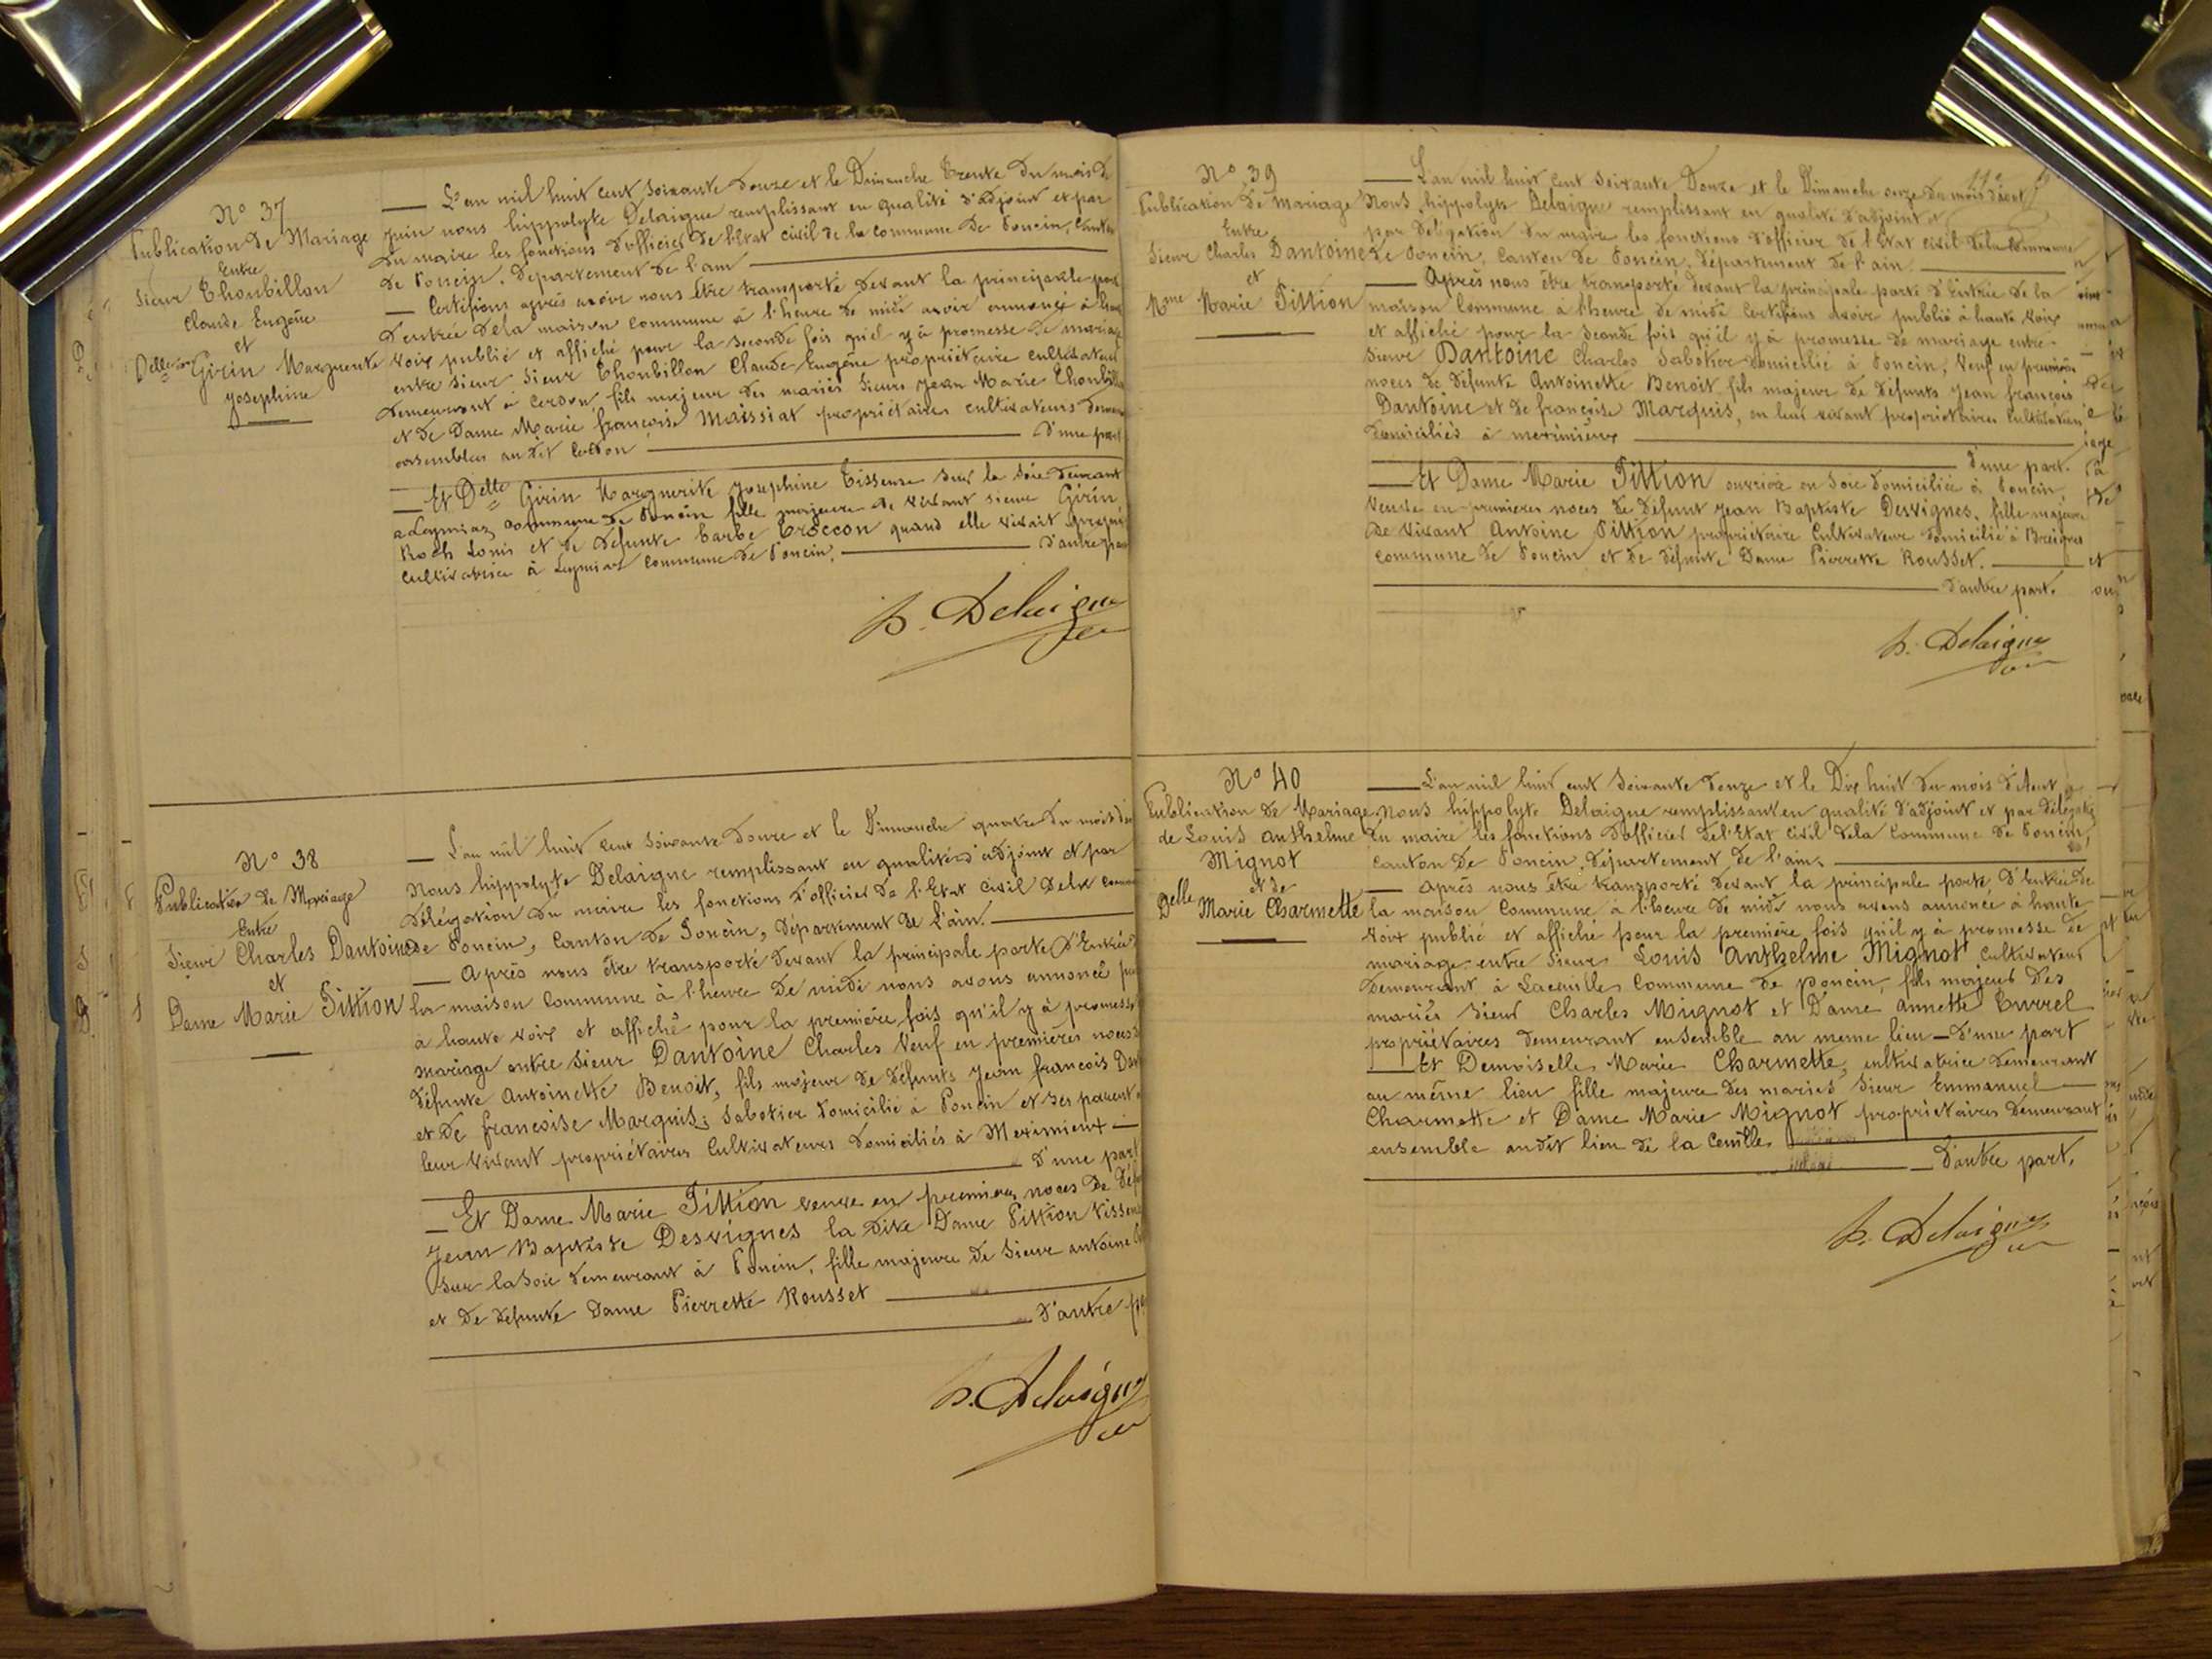 N° 37
Publication de Mariage
Entre
Sieur Thoubillon
Claude Eugène
et
Delle Girin Marguerite
Josephine
L'an mil huit cent soixante douze et le Dimanche trente du mois de
juin nous hippolyte Delaigue remplissant en qualité d'adjoint et par
du maire les fonctions d'officier de l'Etat civil de la commune de Poncin, Canton
de Poncin, Département de l'ain
Certifions après avoir nous être transporté devant la principale porte
d'entrée de la maison commune à l'heure de midi avoir annoncé à haute
voix publié et affiché pour la seconde fois qu'il y à promesse de mariage
entre sieur Sieur Thoubillon Claude Eugène propriétaire cultivateur
demeurant à Cerdon, fils majeur des mariés Sieur Jean Marie Thoubillon
et de Dame Marie françoise Maissiat propriétaires cultivateurs
ensembles au dit Cerdon d'une part
Et Delle Girin Marguerite Josephine Tisseuse sur la Soie
a Leymiaz commune de Poncin fille majeure de vivant sieur Girin
Roch Louis et de défunte barbe Troccon quand elle vivait
Cultivatrice à Leymiaz commune de Poncin, d'autre part
h. Delaigue
N° 38
Publication de Mariage
Entre
Sieur Charles Dantoine
et
Dame Marie Pittion
L'an mil huit cent soixante douze et le Dimanche quatre du mois
Nous hippolyte Delaigue remplissant en qualité d'adjoint et par
délégation du maire les fonctions d'officier de l'Etat civil dela
de Poncin, Canton de Poncin, département de l'ain.
Après nous être transporté devant la principale porte d'Entrée
la maison commune à l'heure de midi nous avons annoncé
à haute voix et affiché pour la première fois qu'il y à promesse
mariage entre sieur Dantoine Charles Veuf en premières noces
défunte Antoinette Benoit, fils majeur de défunts Jean francois
et de francoise Marquis; sabotier domicilié à Poncin et ses parents
leur vivant propriétaires Cultivateurs domiciliés à Meximieux
d'une part
Et Dame Marie Pittion veuve en premières noces de
Jean Baptiste Desvignes la dite Dame Pittion tisseuse
sur la soie demeurant à Poncin, fille majeure de Sieur antoine
et de défunte Dame Pierrette Rousset
d'autre
h. Delaigue
N° 39
Publication de Mariage
Entre
Sieur Charles Dantoine
et
Mme Marie Pittion
L'an mil huit cent soixante Douze et le Dimanche onze du mois d'aout
Nous, hippolyte Delaigue remplissant en qualité d'adjoint et
par délégation du maire les fonctions d'officier de l'Etat civil dela Commune
de Poncin, Canton de Poncin, département de l'ain.
Après nous être transporté devant la principale porte d'Entrée de la
maison Commune à l'heure de midi Certifions avoir publié à haute voix
et affiché pour la seconde fois qu'il y à promesse de mariage entre
sieur Dantoine Charles Sabotier domicilié à Poncin, Veuf en premières
noces de défunte Antoinette Benoit fils majeur de défunts Jean françois
Dantoine et de françoise Marquis, en leur vivant propriétaires Cultivateurs
domiciliés à meximieux
d'une part.
Et Dame Marie Pittion ouvrière en Soie domiciliée à Poncin,
Veuve en premieres noces de défunt Jean Baptiste Desvignes, fille majeure
de vivant Antoine Pittion propriétaire Cultivateur domicilié à Breignes
commune de Poncin et de défunte Dame Pierrette Rousset.
d'autre part.
h. Delaigue
N° 40
Publication de Mariage
de Louis Anthelme
Mignot
et de
Delle Marie Charmette
L'an mil huit cent soixante douze et le Dix huit du mois d'Aout
nous hippolyte Delaigue remplissant en qualité d'adjoint et par délégation
du maire les fonctions d'officier de l'Etat civil dela Commune de Poncin,
canton de Poncin, département de l'ain.
après nous être transporté devant la principale porte, d'Entrée de
la maison Commune à l'heure de midi nous avons annoncé à haute
voix publié et affiché pour la première fois qu'il y à promesse de
mariage entre sieur Louis Anthelme Mignot Cultivateur
demeurant à Lacueille Commune de poncin, fils majeur des
mariés Sieur Charles Mignot et Dame annette Curvel
propriétaires demeurant ensemble au meme lieu d'une part
Et Demoiselle Marie Charmette, cultivatrice demeurant
au même lieu fille majeure des mariés Sieur Emmanuel
Charmette et Dame Marie Mignot propriétaires demeurant
ensemble au dit lieu de la Ceuille
d'autre part.
h. Delaigue